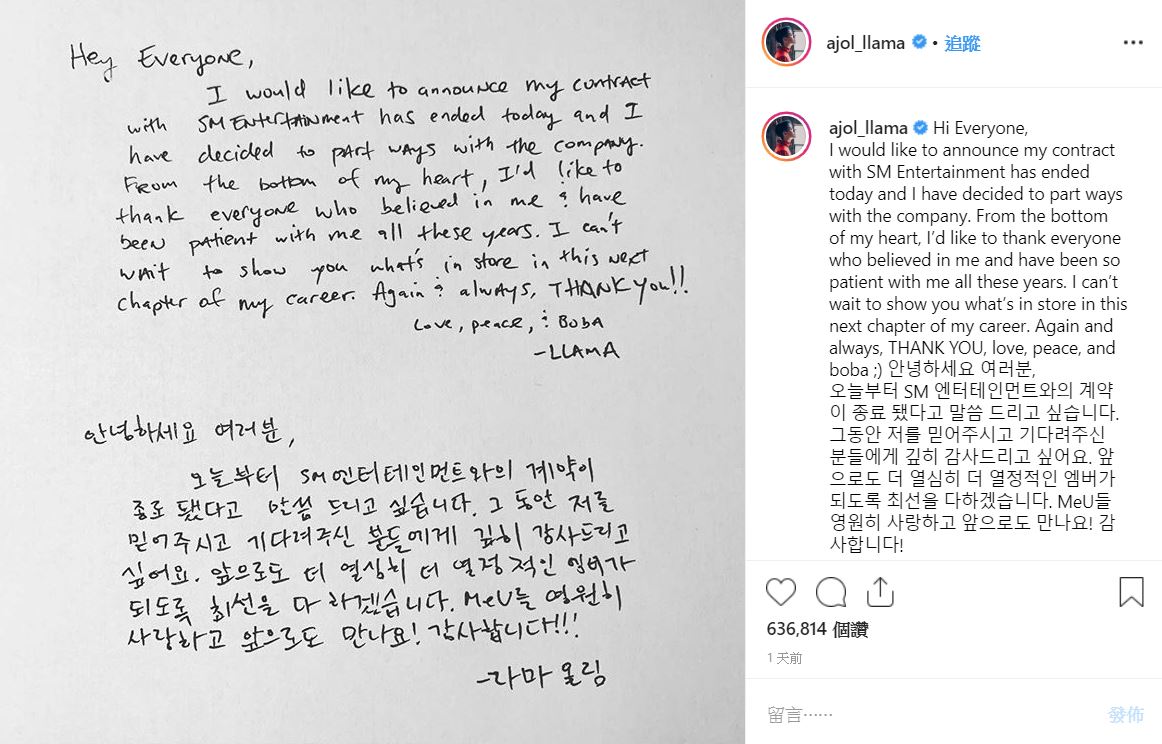 Hey Everyone,
I would like to announce my contract
with SM Entertainment has ended today and I
have decided to part ways with the company.
From the bottom of my heart, I'd like to
thank everyone who believed in me & have
been patient with me all these years. I can't
wait to show you what's in store in this next
chapter of my career. Again & always, THANK YOU!!
Love, peace, & BOBA
-LLAMA
안녕하세요 여러분,
오늘부터 SM 엔터테인먼트와의 계약이
종료 됐다고 말씀 드리고 싶습니다. 그 동안 저를
믿어주시고 기다려주신 분들에게 깊히 감사드리고
싶어요. 앞으로도 더 열심히 더 열정적인 엠버가
되도록 최선을 다 하겠습니다. MeU들 영원히
사랑하고 앞으로도 만나요! 감사합니다!!!
-라마 올림
ajol_llama • 追蹤
ajol_llama Hi Everyone,
I would like to announce my contract
with SM Entertainment has ended
today and I have decided to part ways
with the company. From the bottom
of my heart, I’d like to thank everyone
who believed in me and have been so
patient with me all these years. I can’t
wait to show you what’s in store in this
next chapter of my career. Again and
always, THANK YOU, love, peace, and
boba ;) 안녕하세요 여러분,
오늘부터 SM 엔터테인먼트와의 계약
이 종료 됐다고 말씀 드리고 싶습니다.
그동안 저를 믿어주시고 기다려주신
분들에게 깊히 감사드리고 싶어요. 앞
으로도 더 열심히 더 열정적인 엠버가
되도록 최선을 다하겠습니다. MeU들
영원히 사랑하고 앞으로도 만나요! 감
사합니다!
636,814 個讚
1 天前
留言⋯⋯ 發佈